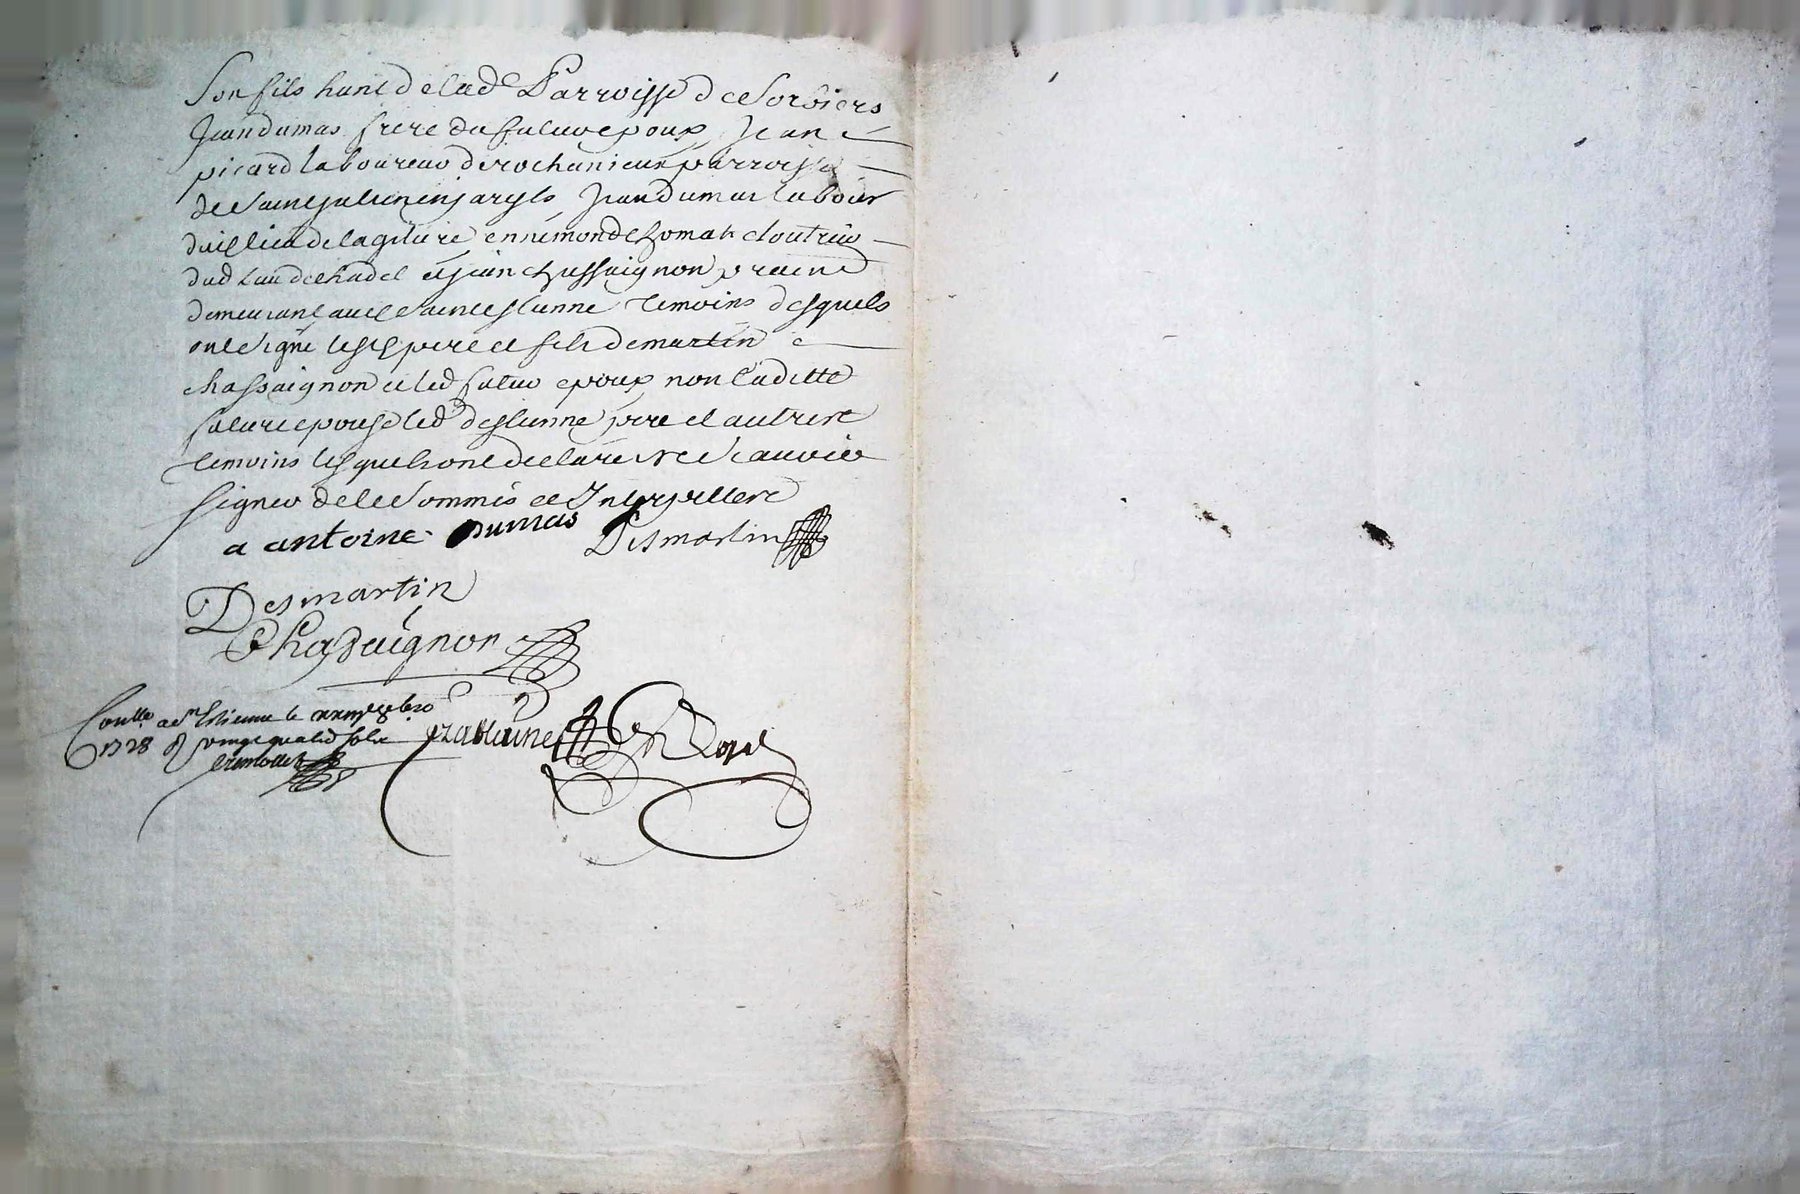 Son fils hant de lad Parroisse de Sorbiers
Jean dumas frere du futur epoux Jean
picard laboureur de rochanieux parroisse
de Saint julien en jaretz Jean dumas labour
du lieu de la giliere ennemond thomas cloutrier
dud lieu de et jean chassaignon praticien
demeurant aud Saint estienne temoins desquels
ont signé lesd pere et fils demartin
chassaignon et led futur epoux non laditte
future epouse led d estienne pere et autres
temoins lesquels ont declaré ne scavoir
signer de ce sommés et Interpellere
a antoine Dumas Desmartin
Desmartin
Chassaignon
Conllé a St Estienne le
1728 sols